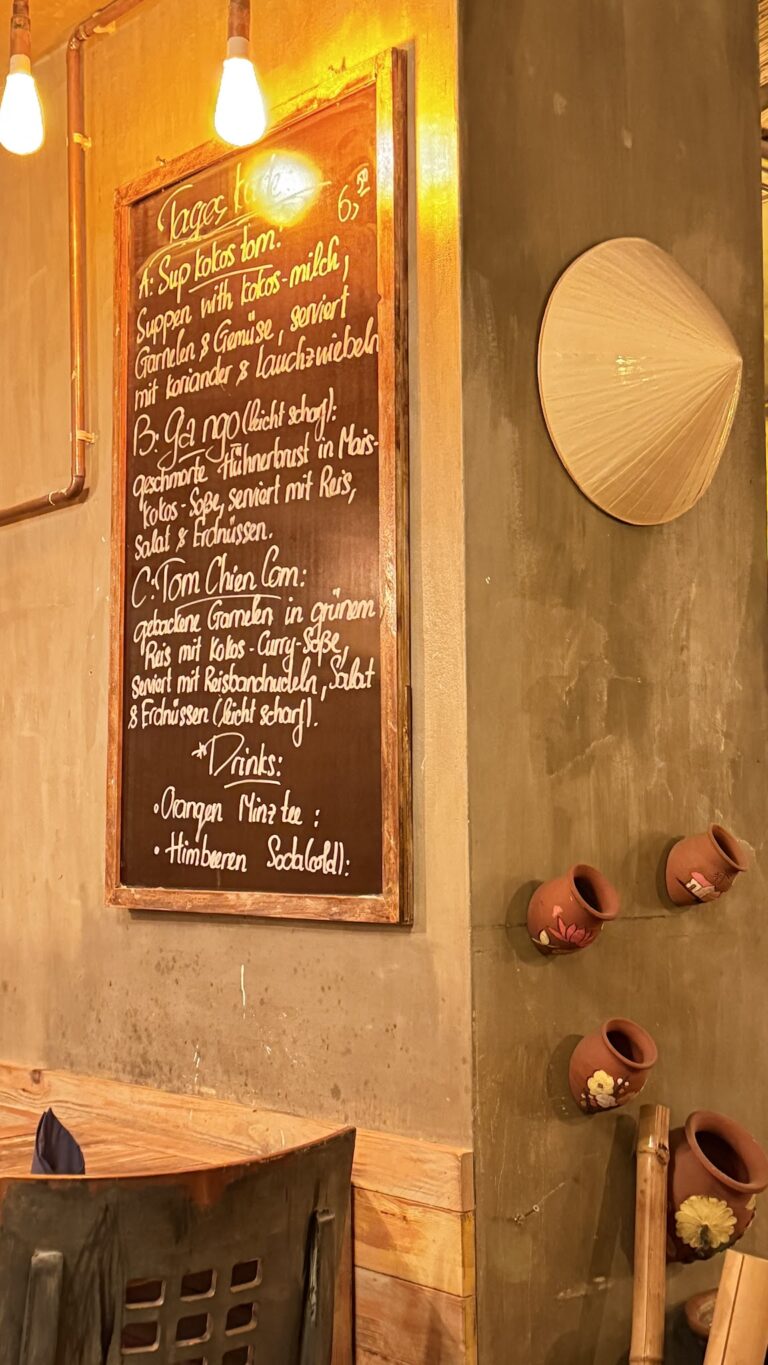 Tages
6,50
A: Sup kokos tom:
Suppen with kokos-milch,
Garnelen & Gemüse, serviert
mit koriander & Lauchzwiebeln
B: Ga ngo (leicht scharf):
geschmorte Hühnerbrust in Mais-
kokos-Soße, serviert mit Reis,
Salat & Erdnüssen.
C: Tom Chien Com:
gebackene Garnelen in grünem
Reis mit Kokos-Curry-Soße,
serviert mit Reisbandnudeln, Salat
& Erdnüssen (leicht scharf).
*Drinks:
• Orangen Minztee:
• Himbeeren Soda (cold):